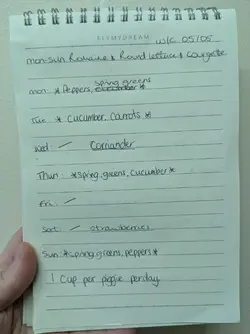 ELLMYDREAM
W/C 05/05
mon-sun Romaine & Round lettuce & Courgette
spring greens
mon: * Peppers, cucumber *
Tue: * Cucumber, Carrots *
Wed: / Corriander
Thur: * spring greens, cucumber *
Fri: /
Sat: / strawberries
Sun: * spring greens, peppers *
1 Cup per piggie perday.